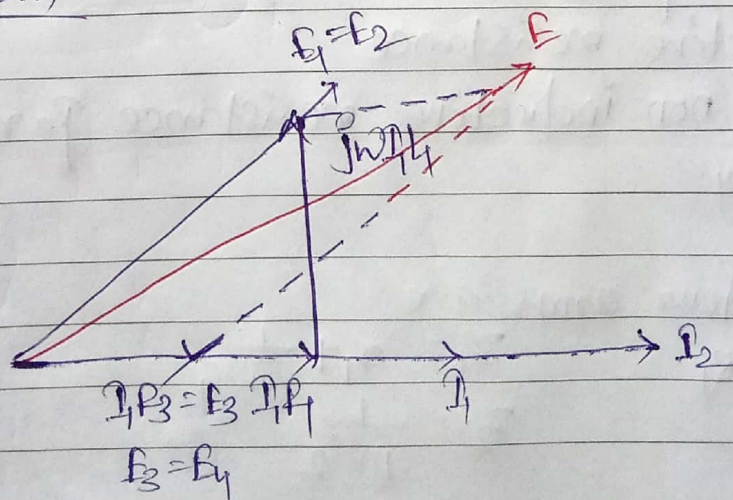 E₁=E₂
E
jωI₁L₁
I₂
I₁R₃=E₃ I₁R₁
I₁
E₃=E₄